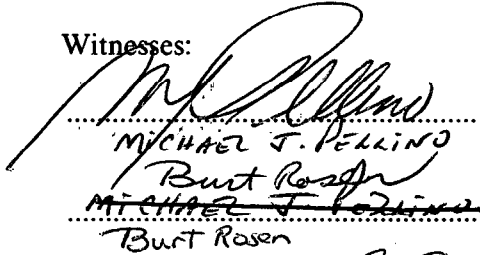 Witnesses:
MICHAEL J. PELLINO
Burt Rosen
MICHAEL J PELLINO
Burt Rosen